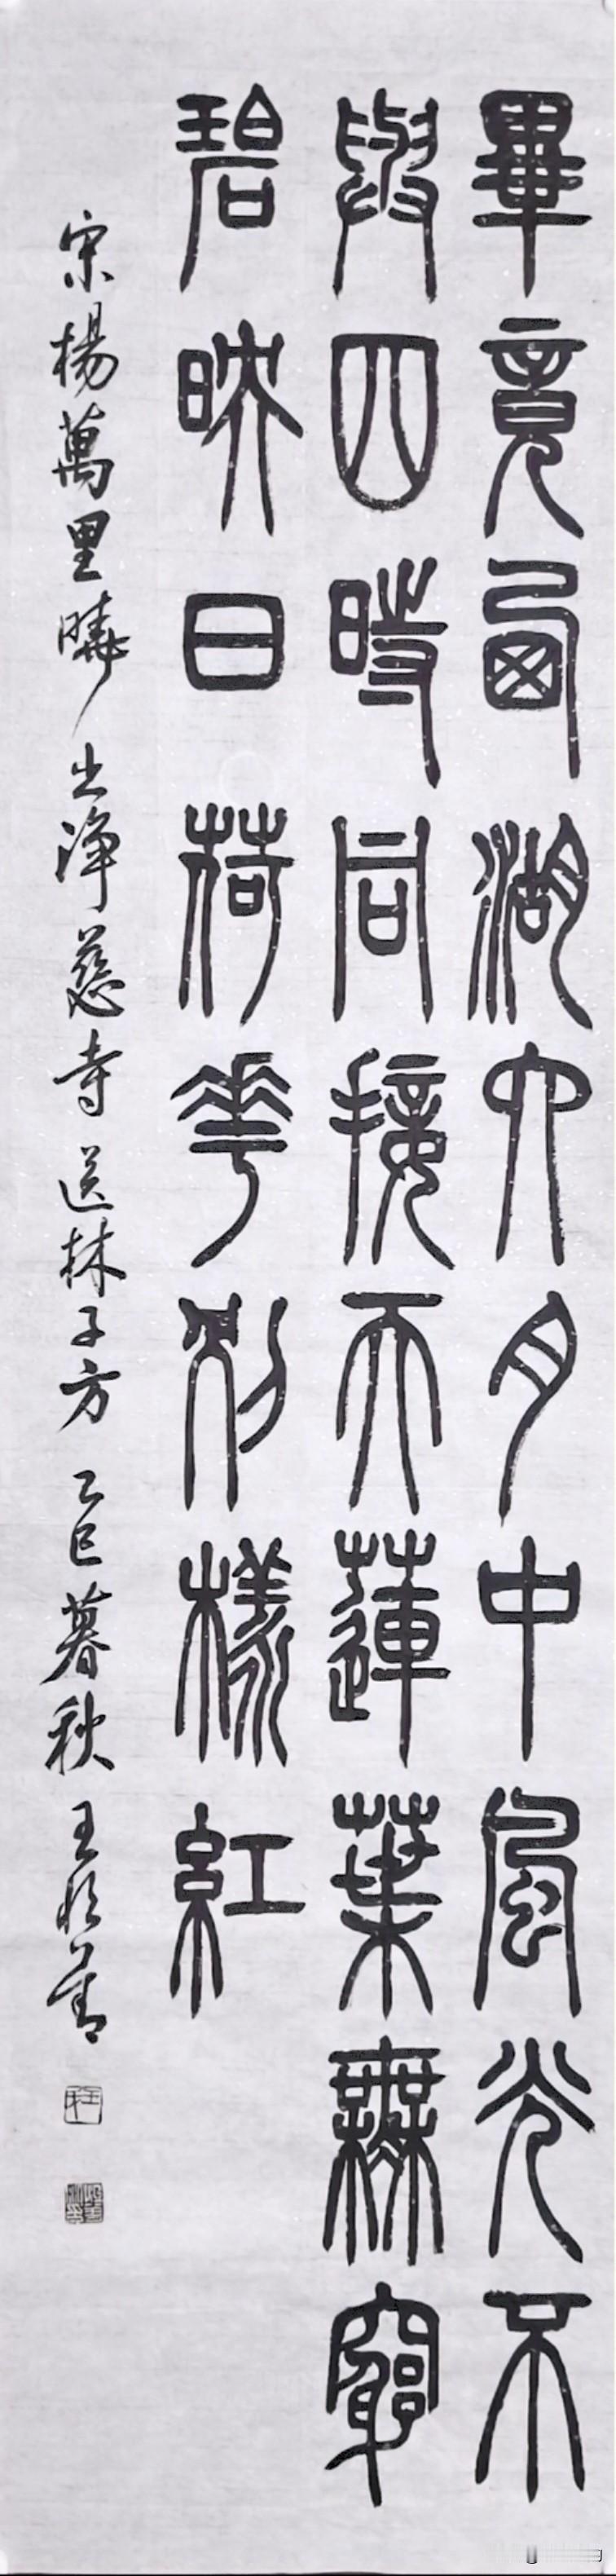 畢竟西湖六月中風光不
與四時同接天蓮葉無窮
碧映日荷花別樣紅
宋楊萬里曉出淨慈寺送林子方 乙巳暮秋 王